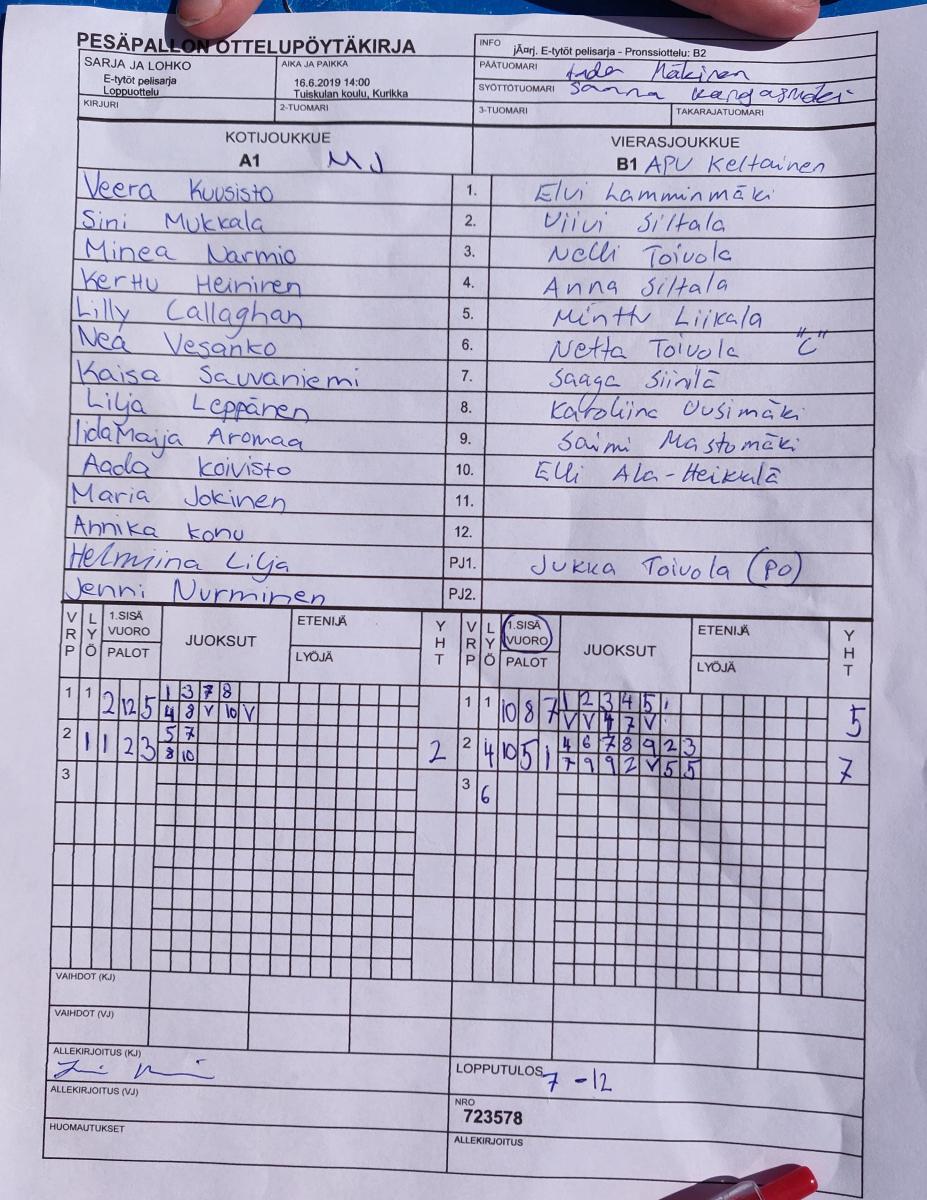 PESÄPALLON OTTELUPÖYTÄKIRJA
INFO jÄ¤rj. E-tytöt pelisarja - Pronssiottelu: B2
SARJA JA LOHKO
E-tytöt pelisarja
Loppuottelu
AIKA JA PAIKKA
16.6.2019 14:00
Tuiskulan koulu, Kurikka
PÄÄTUOMARI Mäkinen
SYÖTTÖTUOMARI Sanna Kangasmäki
KIRJURI
2-TUOMARI
3-TUOMARI
TAKARAJATUOMARI
KOTIJOUKKUE
A1 MJ
VIERASJOUKKUE
B1 APV Keltainen
Veera Kuusisto 1. Elvi Lamminmäki
Sini Mukkala 2. Viivi Siltala
Minea Narmio 3. Nelli Toivola
Kerttu Heininen 4. Anna Siltala
Lilly Callaghan 5. Minttu Liikala
Nea Vesanko 6. Netta Toivola "C"
Kaisa Sauvaniemi 7. Saaga Siinilä
Lilja Leppänen 8. Karoliina Uusimäki
IidaMaija Aromaa 9. Saimi Mastomäki
Aada Koivisto 10. Elli Ala-Heikkilä
Maria Jokinen 11.
Annika Konu 12.
Helmiina Lilja PJ1. Jukka Toivola (PO)
Jenni Nurminen PJ2.
VRP LYÖ 1.SISÄ VUORO PALOT JUOKSUT ETENIJÄ LYÖJÄ YHT VRP LYÖ 1.SISÄ VUORO PALOT JUOKSUT ETENIJÄ LYÖJÄ YHT
1 1 2 12 5 1 3 7 8
4 8 V 10 V
1 1 10 8 7 1 2 3 4 5
V V 4 7 V 5
2 1 1 2 3 5 7
8 10 2
2 4 10 5 1 4 6 7 8 9 2 3
7 9 9 2 V 5 5 7
3
3 6
VAIHDOT (KJ)
VAIHDOT (VJ)
ALLEKIRJOITUS (KJ)
LOPPUTULOS 7 - 12
ALLEKIRJOITUS (VJ)
NRO
723578
HUOMAUTUKSET
ALLEKIRJOITUS